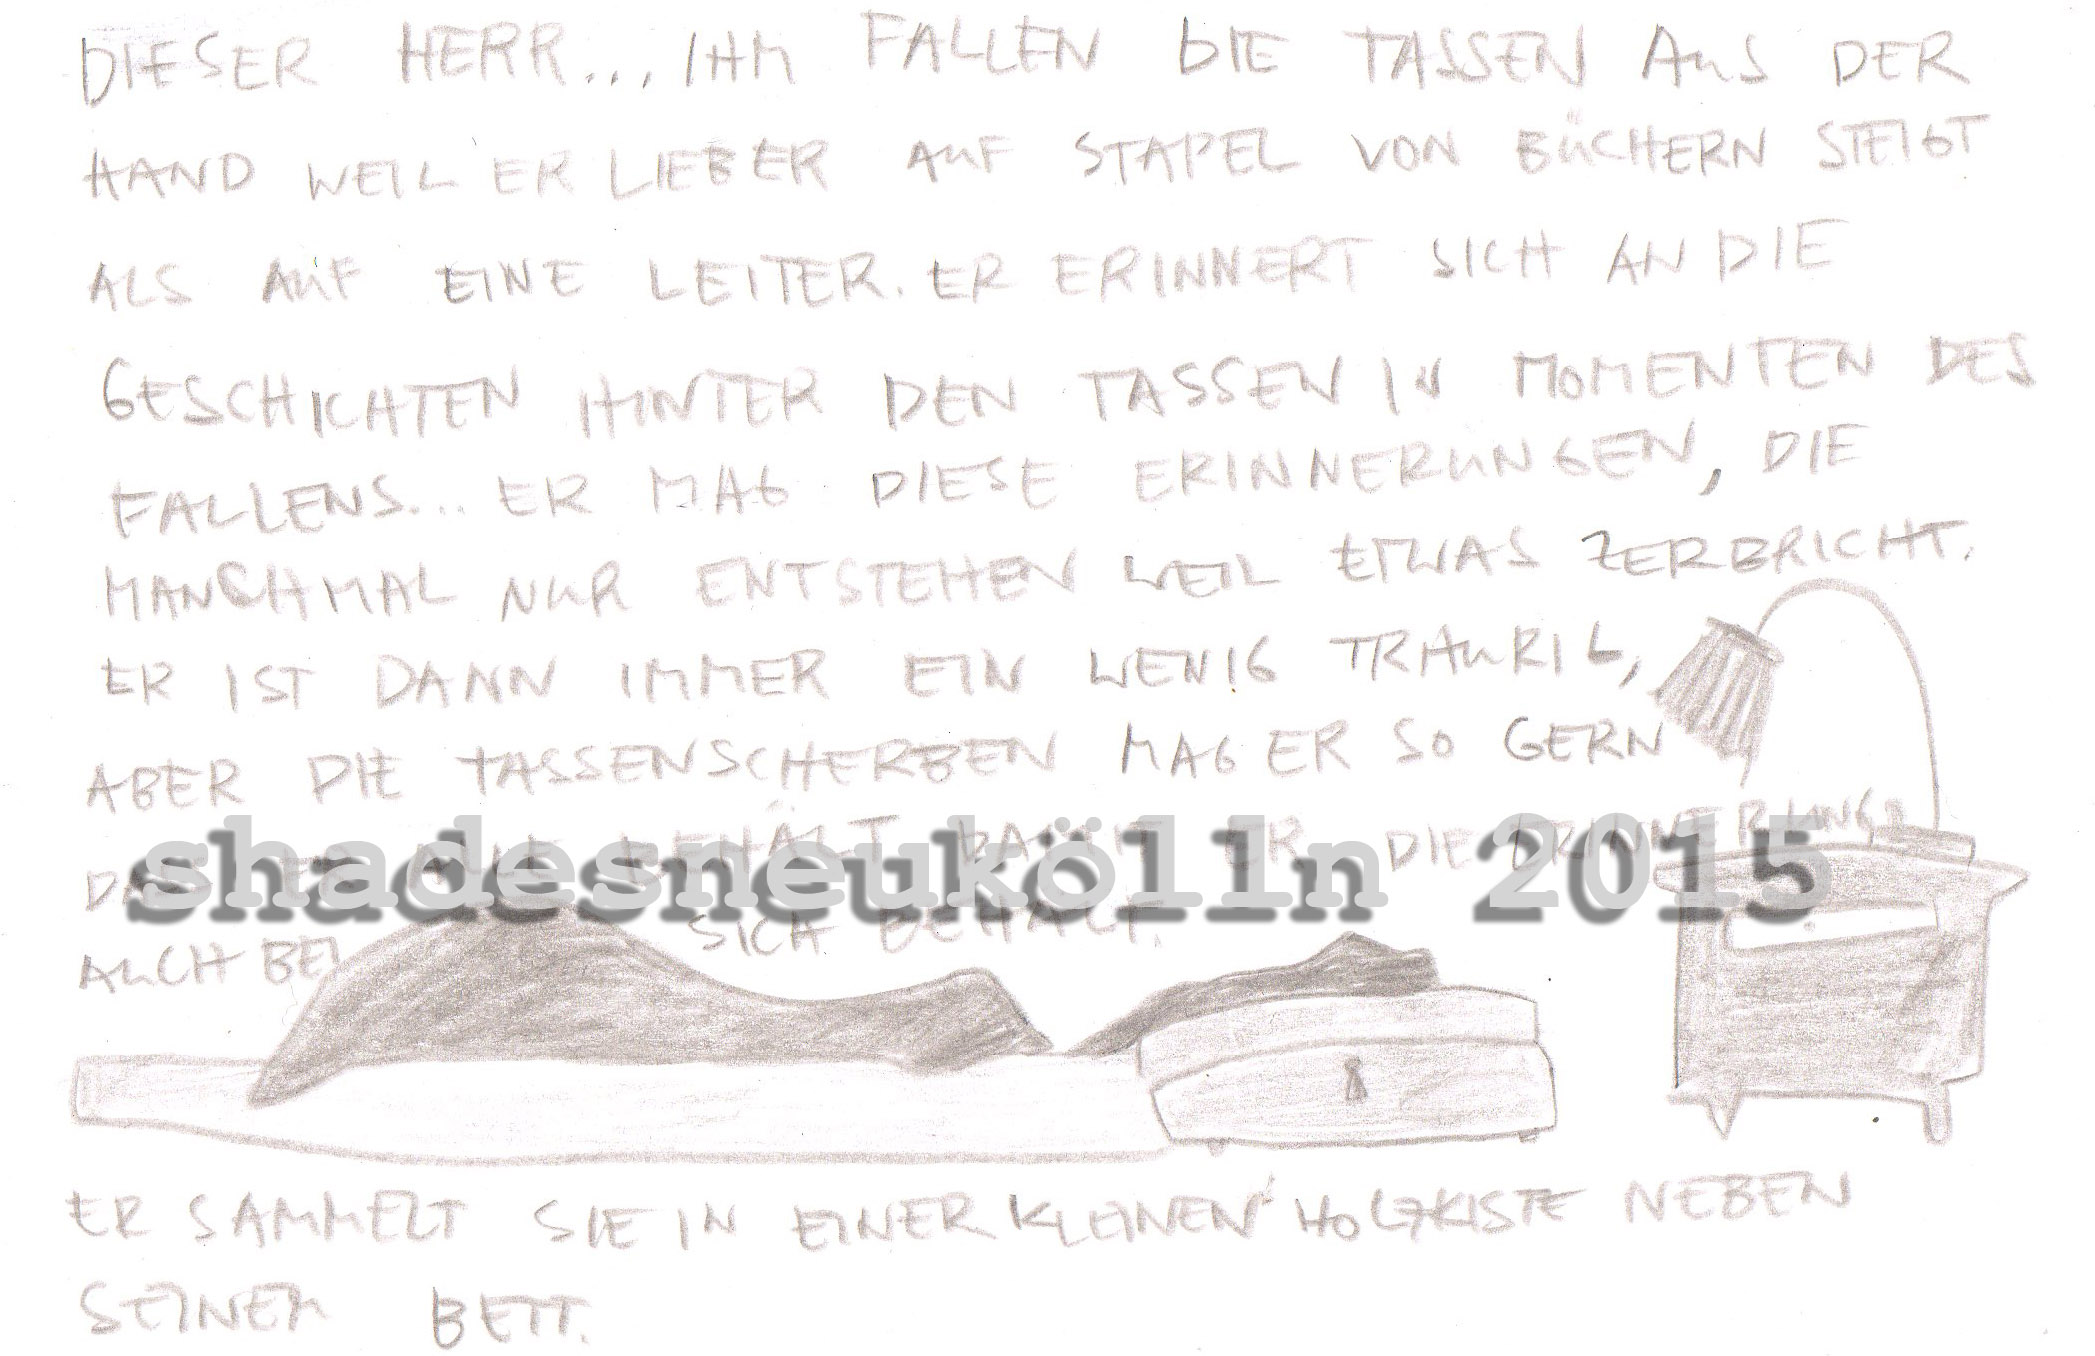 DIESER HERR... IHM FALLEN DIE TASSEN AUS DER
HAND WEIL ER LIEBER AUF STAPEL VON BÜCHERN STEIGT
ALS AUF EINE LEITER. ER ERINNERT SICH AN DIE
GESCHICHTEN HINTER DEN TASSEN IN MOMENTEN DES
FALLENS... ER MAG DIESE ERINNERUNGEN, DIE
MANCHMAL NUR ENTSTEHEN WEIL ETWAS ZERBRICHT.
ER IST DANN IMMER EIN WENIG TRAURIG,
ABER DIE TASSENSCHERBEN MAG ER SO GERN
ER BEHÄLT ER DIE
shadesneukölln 2015
AUCH BEI SICH BEHÄLT.
8
ER SAMMELT SIE IN EINER KLEINEN HOLZKISTE NEBEN
SEINEM BETT.